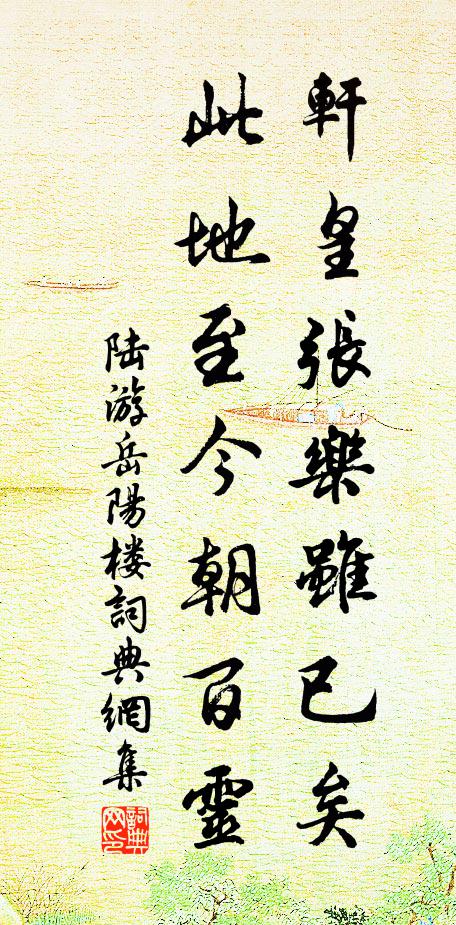 軒皇張樂雖已矣
此地至今朝百靈
陆游岳陽楼詞典網集
詞典網印